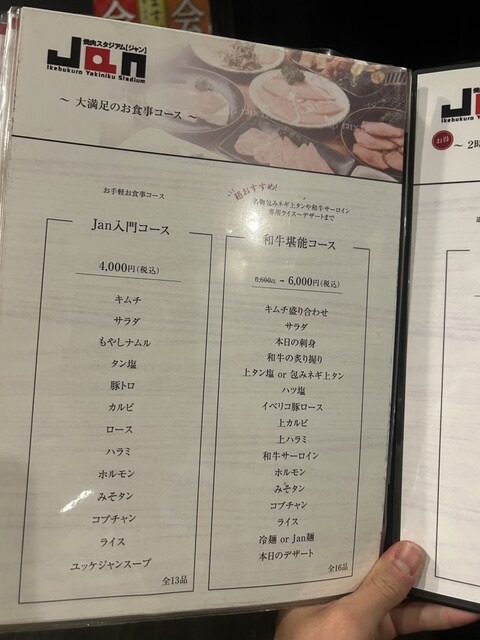 焼肉スタジアム【ジャン】
Jan
Ikebukuro Yakiniku Stadium
～ 大満足のお食事コース ～
お手軽お食事コース
Jan入門コース
4,000円(税込)
キムチ
サラダ
もやしナムル
タン塩
豚トロ
カルビ
ロース
ハラミ
ホルモン
みそタン
コブチャン
ライス
ユッケジャンスープ
全13品
超おすすめ!
名物包みネギ上タンや和牛サーロイン
専用ライス〜デザートまで
和牛堪能コース
6,000円(税込)
キムチ盛り合わせ
サラダ
本日の刺身
和牛の炙り握り
上タン塩 or 包みネギ上タン
ハツ塩
イベリコ豚ロース
上カルビ
上ハラミ
和牛サーロイン
ホルモン
みそタン
コブチャン
ライス
冷麺 or Jan麺
本日のデザート
全16品
お得
～ 2時